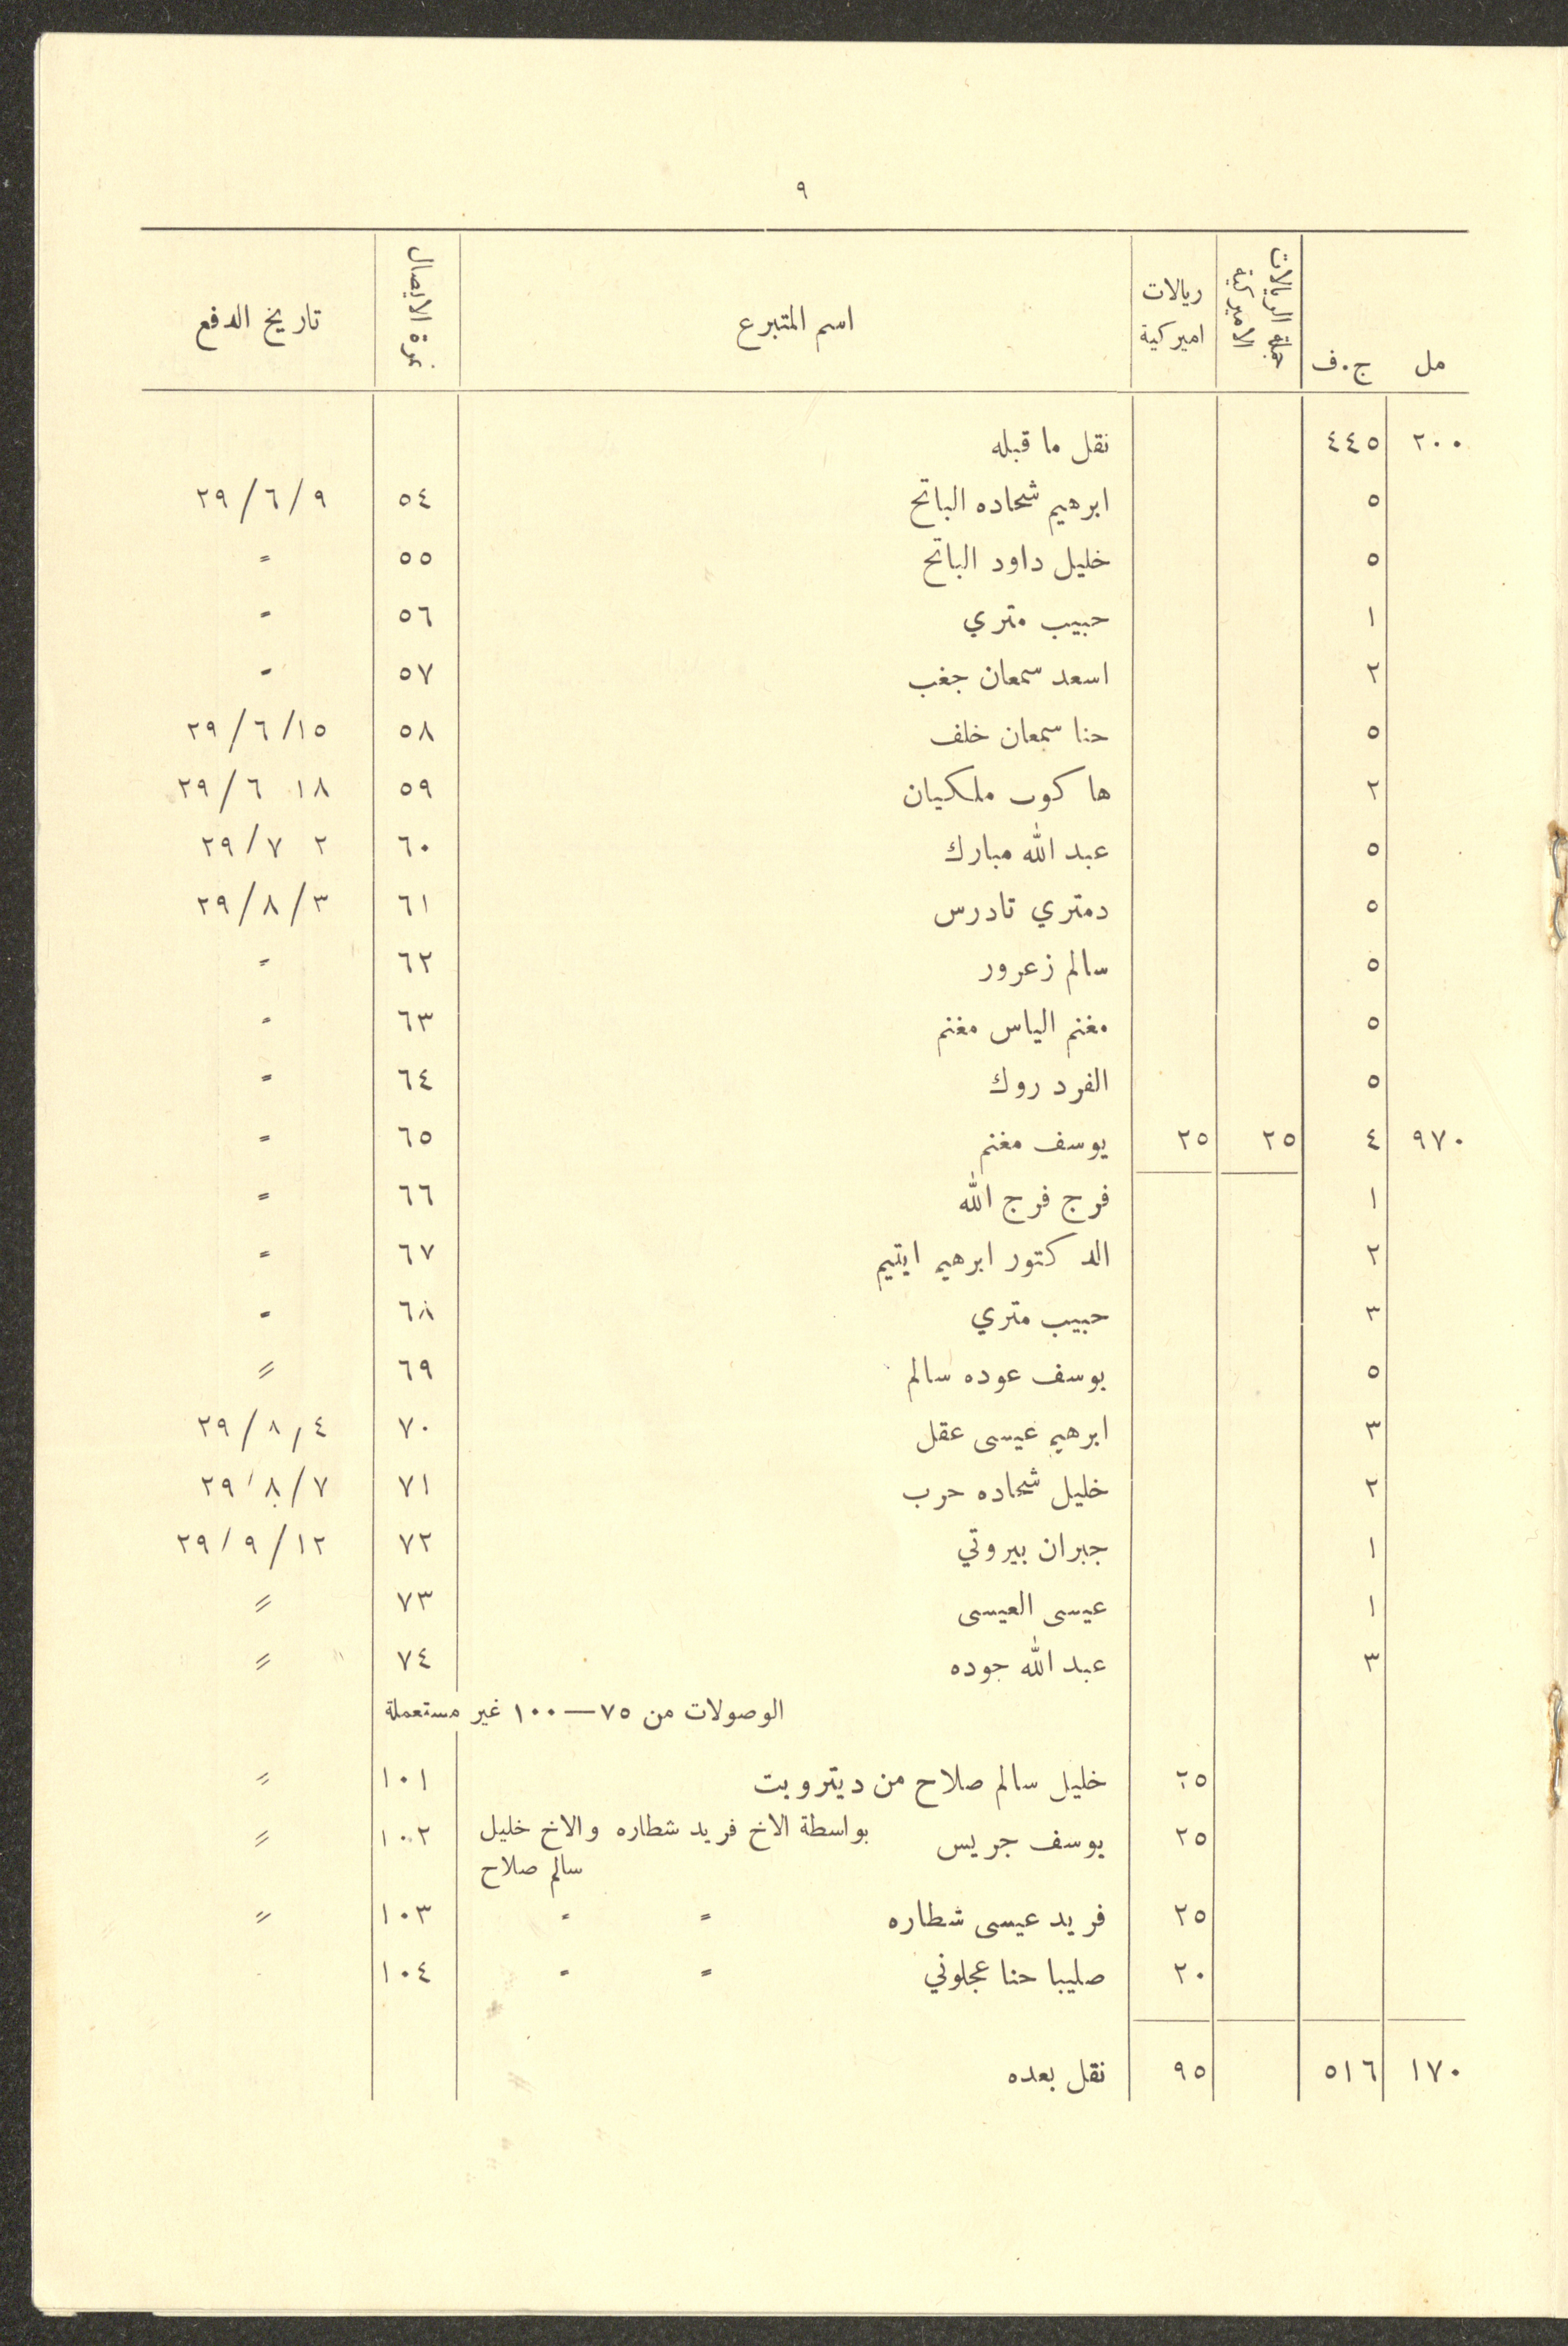 ٩
مل ج.ف جملة الريالات الاميركية ريالات اميركية اسم المتبرع نمرة الايصال تاريخ الدفع
٢٠٠ ٤٤٥ نقل ما قبله
٥ ابرهيم شحاده الباتح ٥٤ ٢٩/٦/٩
٥ خليل داود الباتح ٥٥ =
١ حبيب متري ٥٦ =
٢ اسعد سمعان جغب ٥٧ =
٥ حنا سمعان خلف ٥٨ ٢٩/٦/١٥
٢ هاكوب ملكيان ٥٩ ٢٩/٦ ١٨
٥ عبد الله مبارك ٦٠ ٢٩/٧ ٢
٥ دمتري تادرس ٦١ ٢٩/٨/٣
٥ سالم زعرور ٦٢ =
٥ مغنم الياس مغنم ٦٣ =
٥ الفرد روك ٦٤ =
٩٧٠ ٤ ٢٥ ٢٥ يوسف مغنم ٦٥ =
١ فرج فرج الله ٦٦ =
٢ الدكتور ابرهيم ايتيم ٦٧ =
٣ حبيب متري ٦٨ =
٥ يوسف عوده سالم ٦٩ =
٣ ابرهيم عيسى عقل ٧٠ ٢٩/٨/٤
٢ خليل شحاده حرب ٧١ ٢٩/٨/٧
١ جبران بيروتي ٧٢ ٢٩/٩/١٢
١ عيسى العيسى ٧٣ =
٣ عبد الله جوده ٧٤ =
الوصولات من ٧٥—١٠٠ غير مستعملة
٢٥ خليل سالم صلاح من ديترويت ١٠١ =
٢٥ يوسف جريس بواسطة الاخ فريد شطاره والاخ خليل ١٠٢ =
سالم صلاح
٢٥ فريد عيسى شطاره = = ١٠٣ =
٢٠ صليبا حنا عجلوني = = ١٠٤
١٧٠ ٥١٦ ٩٥ نقل بعده